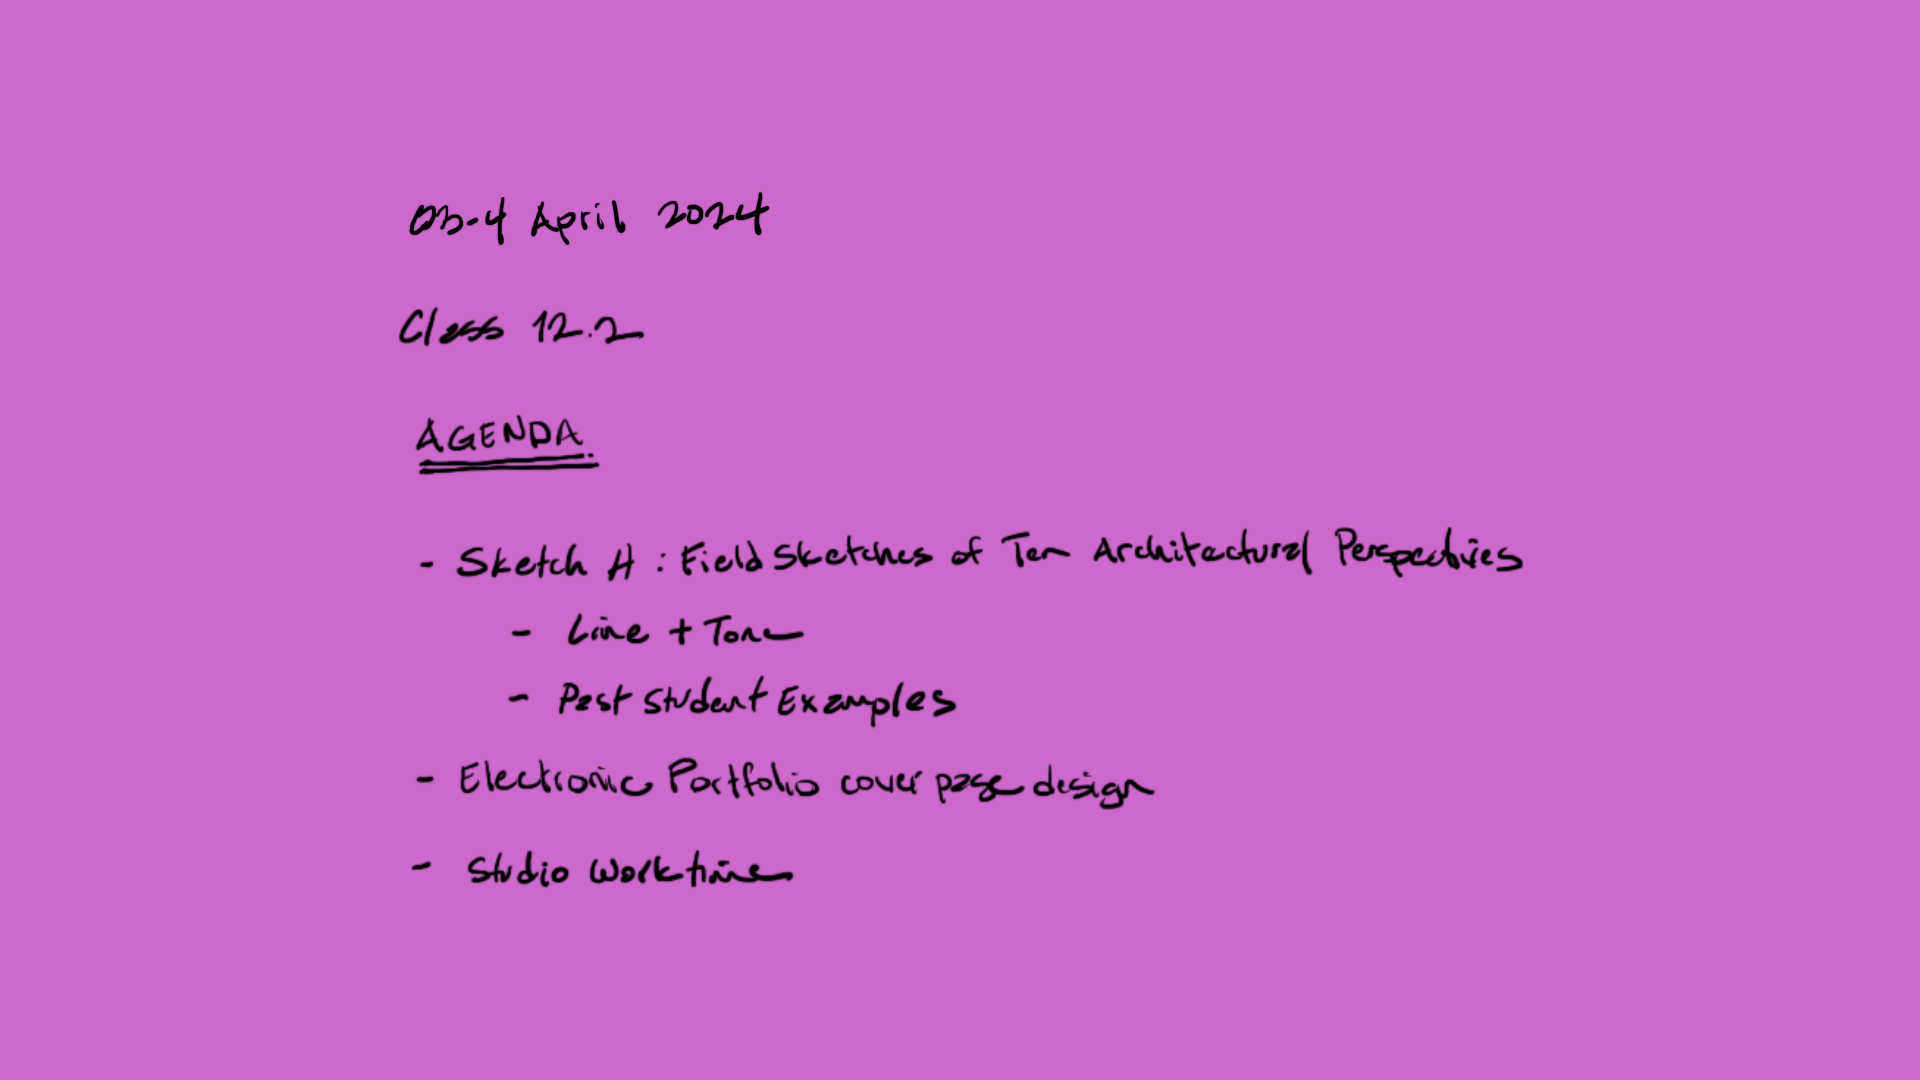 03-4 April 2024
Class 12.2
AGENDA
- Sketch H : Field Sketches of Ten Architectural Perspectives
- Line + Tone
- Past Student Examples
- Electronic Portfolio cover page design
- Studio Worktime